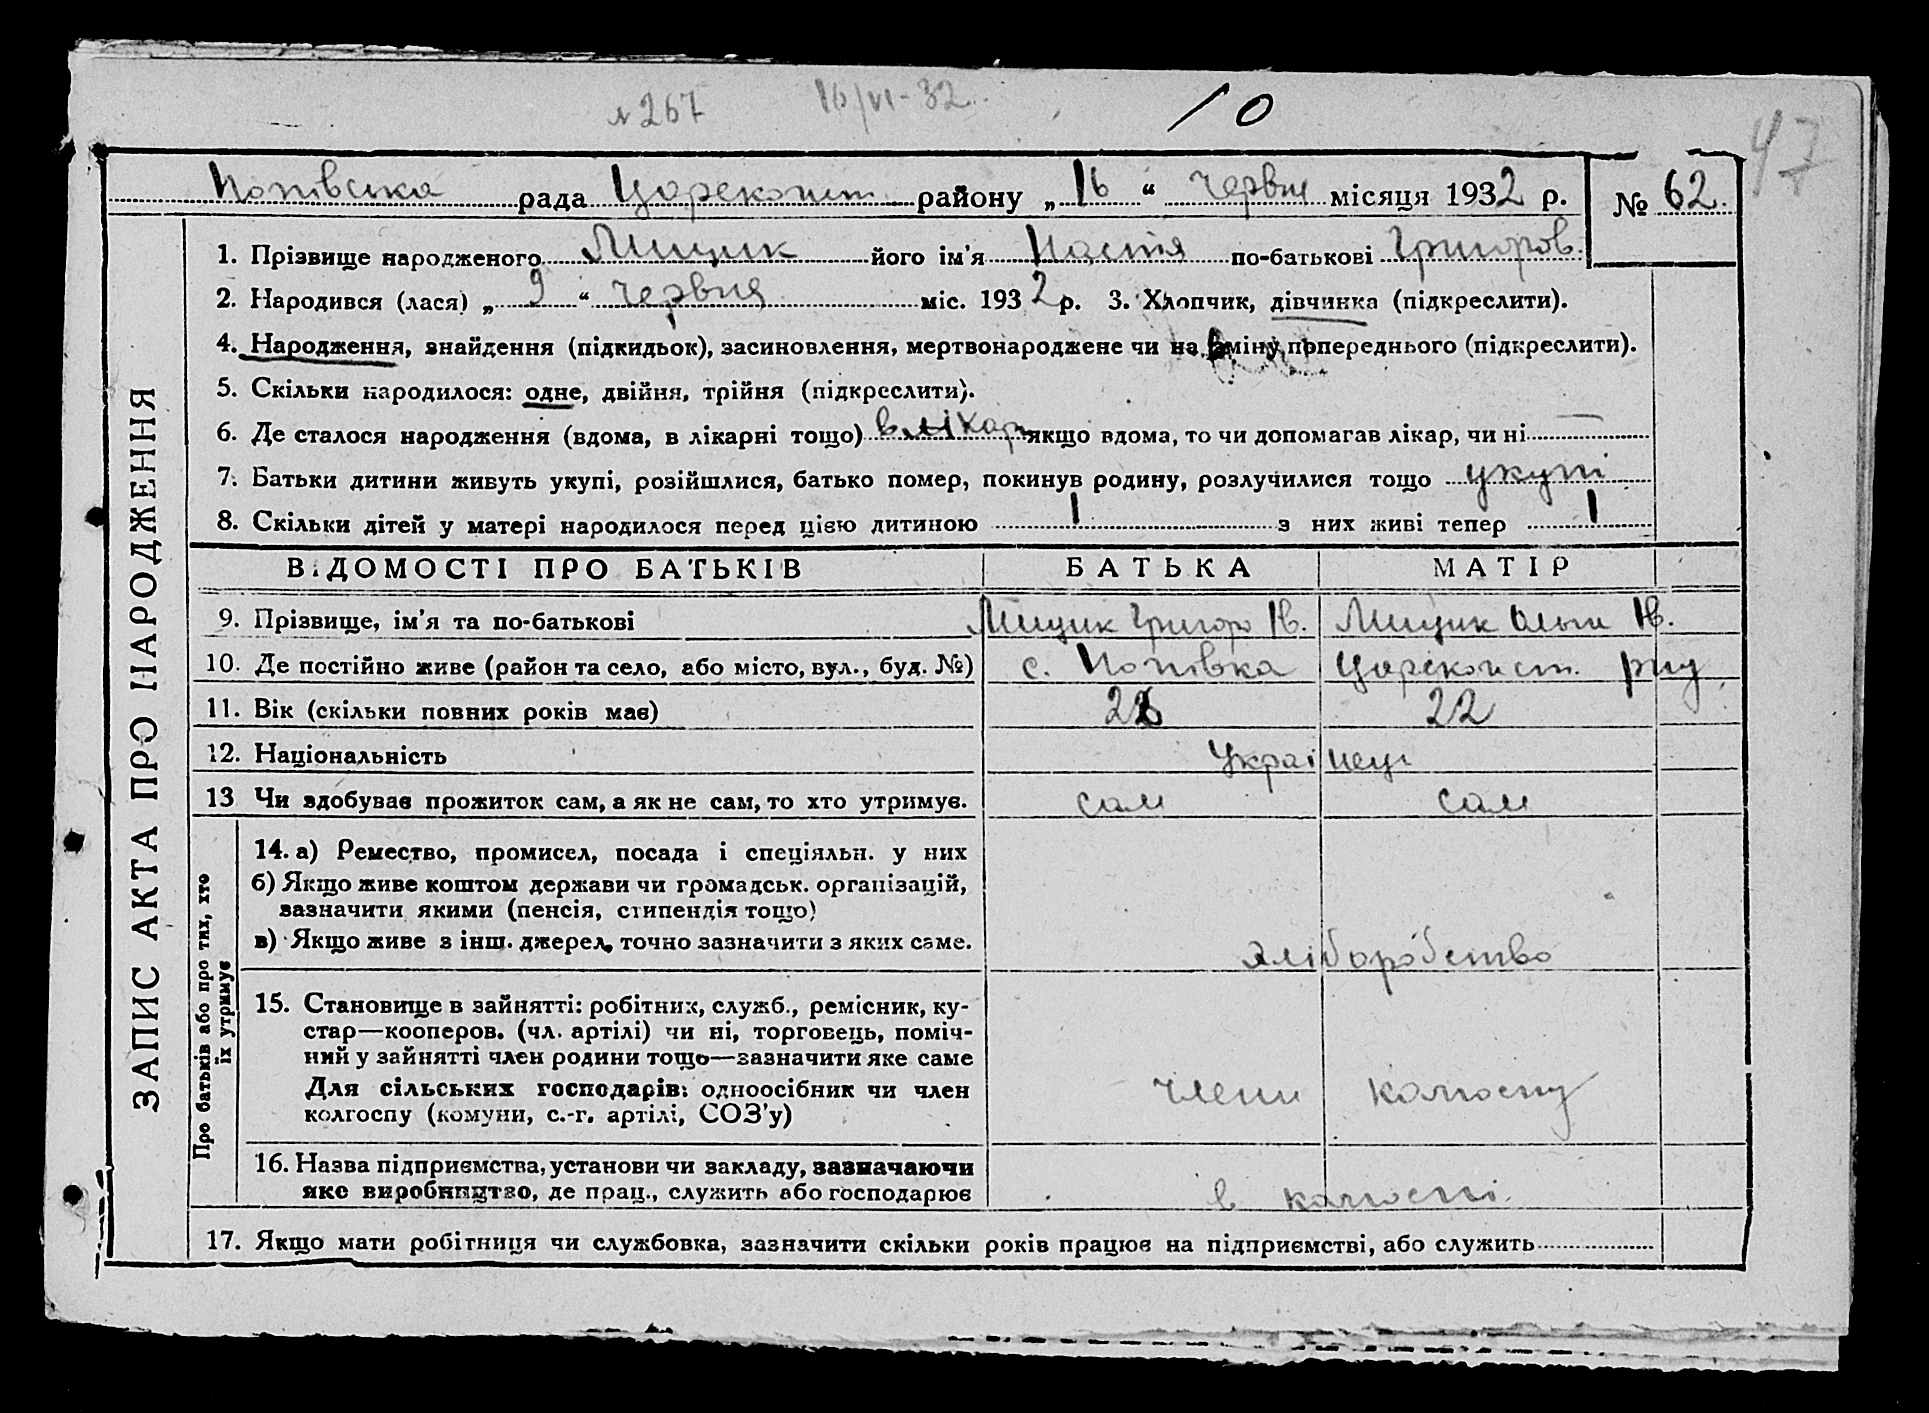 №267 16/VI-32 10
47
Попівська рада Цареконст. району „16“ Червня місяця 1932 р. № 62.
1. Прізвище народженого Мищик його ім'я Настя по-батькові Григоров.
2. Народився (лася) „9“ Червня міс. 1932 р. 3. Хлопчик, дівчинка (підкреслити).
4. Народження, знайдення (підкидьок), засиновлення, мертвонароджене чи на зміну попереднього (підкреслити).
5. Скільки народилося: одне, двійня, трійня (підкреслити).
6. Де сталося народження (вдома, в лікарні тощо) в лікар якщо вдома, то чи допомагав лікар, чи ні —
7. Батьки дитини живуть укупі, розійшлися, батько помер, покинув родину, розлучилися тощо укупі
8. Скільки дітей у матері народилося перед цією дитиною 1 з них живі тепер 1
ВІДОМОСТІ ПРО БАТЬКІВ БАТЬКА МАТІР
9. Прізвище, ім'я та по-батькові Мищик Григор Ів. Мищик Ольги Ів.
10. Де постійно живе (район та село, або місто, вул., буд. №) с. Попівка Цареконст. р-ну
11. Вік (скільки повних років має) 22
12. Національність Українці
13 Чи здобуває прожиток сам, а як не сам, то хто утримує. сам сам
14. а) Ремество, промисел, посада і спеціяльн. у них
б) Якщо живе коштом держави чи громадськ. організацій,
зазначити якими (пенсія, стипендія тощо)
в) Якщо живе з інш. джерел, точно зазначити з яких саме.
хліборобство
15. Становище в зайнятті: робітник, служб., ремісник, ку-
стар—кооперов. (чл. артілі) чи ні, торговець, поміч-
ний у зайнятті член родини тощо—зазначити яке саме
Для сільських господарів: одноосібник чи член
колгоспу (комуни, с.-г. артілі, СОЗ'у)
члени колгоспу
16. Назва підприємства, установи чи закладу, зазначаючи
яке виробництво, де прац., служить або господарює
в колгоспі
17. Якщо мати робітниця чи службовка, зазначити скільки років працює на підприємстві, або служить
ЗАПИС АКТА ПРО НАРОДЖЕННЯ
Про батьків або про тих, хто
їх утримує